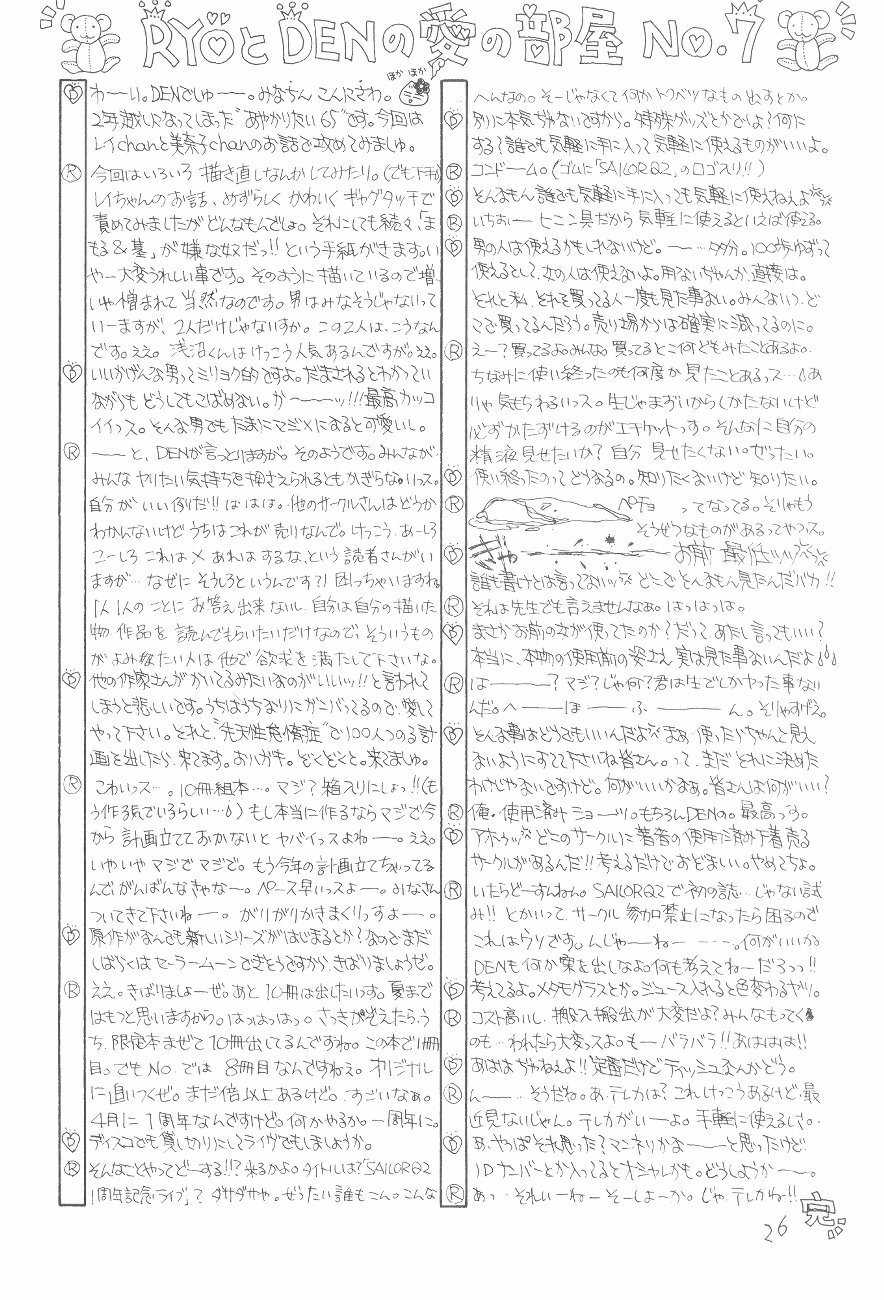 RYOとDENの愛の部屋 No.7
ほかほか
D わーい。DENでしゅー。みなちん こんにさわ。
2年越しになってしまった"あやかりたい65"です。今回は
レイchanと美奈子chanのお話で攻めてみましゅ。
R 今回はいろいろ 描き直しなんかしてみたり。(でも下手)
レイちゃんのお話、めずらしく かわいく ギャグタッチで
責めてみましたが どんなもんでしょ。それにしても続々、「ま
もる&墓」が嫌な奴だっ!! という手紙がきます。い
やー大変うれしい事です。そのように描いているので増、
いや憎まれて 当然なのです。男はみなそうじゃないって
いーますが、2人だけじゃないすか。この2人は、こうなん
です。ええ。浅沼くんはけっこう人気あるんですが。ええ。
D いいかげんな男ってミリョク的ですよ。だまされるとわかってい
ながらも どうしてもこばめない。かーーッ!!!最高カッコ
イイっス。そんな男でもたまにマジメになると可愛いし。
R ーーと、DENが言っとりますが。そのようです。みんなが、
みんな ヤリたい気持ちを押さえられるともかぎらな。いっス。
自分がいい例りだ!! ははは。他のサークルさんはどうか
わかんないけど うちはこれが売りなんで。けっこう、あーしろ
こーしろ これは× あれはするな、という 読者さんがい
ますが…なぜに そうしろというんです?! 困っちゃいますね。
1人1人のことに お答え出来ないし、自分は自分の描いた
物、作品を 読んでもらいたいだけなので、そういうもの
がよみたい人は他で欲求を満たして下さいな。
D 他の作家さんがかいてるみたいなのがいいいッ!!と言われて
しまうと悲しいです。うちはうちなりにガンバってるので、愛して
やって下さい。それと"先天性怠惰症"で100人つのる計
画を出したら、来てます。おハガキ。どくどくと。来てましゅ。
R こわいっス…。10冊組本…。マジ?箱入りにしょっ!!(も
う作る気でいるらしい…) もし本当に作るならマジで今
から 計画立てておかないと ヤバイっスよねーー。ええ。
いやいや マジで マジで。もう今年の計画立てちゃってる
んで、がんばんなきゃなー。ペース早いっスよー。みなさん
ついてきて下さいねーー。がりがりかきまくりっすよーー。
D 原作がなんでも新しいシリーズがはじまるとか?なのでまだ
しばらくはセーラームーンできそうですから、きばりましょうぜ。
R ええ。きばりましょーぜ。あと10冊は出したいっす。夏まで
はもつと思いますから。はっはっはっ。さっきかぞえたら、う
ち、限定本まぜて10冊出てるんですね。この本で11冊
目。でも No. では 8冊目なんですねぇ。オリジナル
に追いつくぜ。まだ倍以上あるけど。すごいなぁ。
4月に1周年なんですけど。何かやるか。一周年に。
D ディスコでも貸し切りにしてライヴでもしましょうか。
R そんなことやってどーする!!? 来るかよ。タイトルは?「SAILOR Q2
1周年記念ライブ」? ダサダサや。ぜったい誰もこん。こんな
へんなの。そーじゃなくて何か トクベツなもの 出すとか。
D 別に本気じゃないですから。特殊グッズとかでしょ?何に
する?誰でも気軽に手に入って気軽に使えるものがいいよ。
R コンドーム。(ゴムに「SAILOR Q2」のロゴ入り!!)
D そんなもん 誰でも気軽に手に入っても気軽に使えねえよ
R いちおーー ヒニン具だから 気軽に使えるといえば使える。
D 男の人は使えるかもしれないけど。ー…多分。100歩ゆずって
使えるとして、女の人は使えないよ。用ないちゃんか、直接は。
それと私、それを買ってる人一度も見た事ない。みんないつ、ど
こで買ってるんだろう。売り場からは確実に減ってるのに。
R えー?買ってるよ。みんな。買ってるとこ何どもみたことあるよ。
ちなみに使い終ったのも何度か 見たことあるっス…あ
りゃ 気もちわるいっス。生じゃまずいからしかたないけど
必ずかたずけるのがエチケットっす。そんなに自分の
精液見せたいか?自分 見せたくない。ぜったい。
D 使い終ったのってどうなるの。知りたくないけど知りたい。
R ペチョ ってなってる。そりゃもう
そうぜつなものがあるってやつっス。
D ぎゃーー お前 最低ッッ
誰も書けとは言ってないッ どこで そんなもん見たんだバカ!!
R それは先生でも言えませんなぁ。はっはっは。
D まさかお前の女が使ってたのか?だって、あたし言ってもいい?
本当に、本物の使用前の姿さえ 実は見た事ないんだよ
R はーーー?マジ?じゃ何?君は生でしかヤった事ない
んだ。へーーほーーふーーん。そりゃすげえ。
D そんな事はどうでもいいんだよ まぁ、使ったらちゃんと見え
ないようにすてて下さいね皆さん。って、まだそれに決めた
わけじゃないですけど。何がいいかなぁ。皆さんは何がいい?
R 俺。使用済み ショーツ。もちろんDENの。最高っす。
D アホゥッ どこのサークルに著者の使用済み下着売る
サークルがあるんだ!!考えるだけでおぞましい。やめてちょ。
R いたらどーすんねん。SAILOR Q2で初の誌…じゃない試
み!! とかいって サークル 参加禁止になったら困るので
これはウソです。んじゃーねー……。何がいいかな
DENも何か案を出しなよ。何も考えてねーだろっっ!!
D 考えてるよ。メタモグラスとか。ジュース入れると色変わるヤツ。
R コスト高いし、搬入 搬出が大変だよ?みんなもってく
のも…われたら大変っスよ。もーバラバラ!!あははは!!
D あははじゃねえよ!!定番だけどティッシュなんかどう。
R んーー…そうだね。あ、テレカは?これけっこうあるけど、最
近見ないじゃん。テレカがいーよ。手軽に使えるしさ。
D あ、やっぱそれ思った?マンネリかなーーと思ったけど、
IDナンバーとか入ってるとオシャレかも。どうしようかーー。
R あっ…それいーねーそーしよーか。じゃ、テレカね!!
完
26